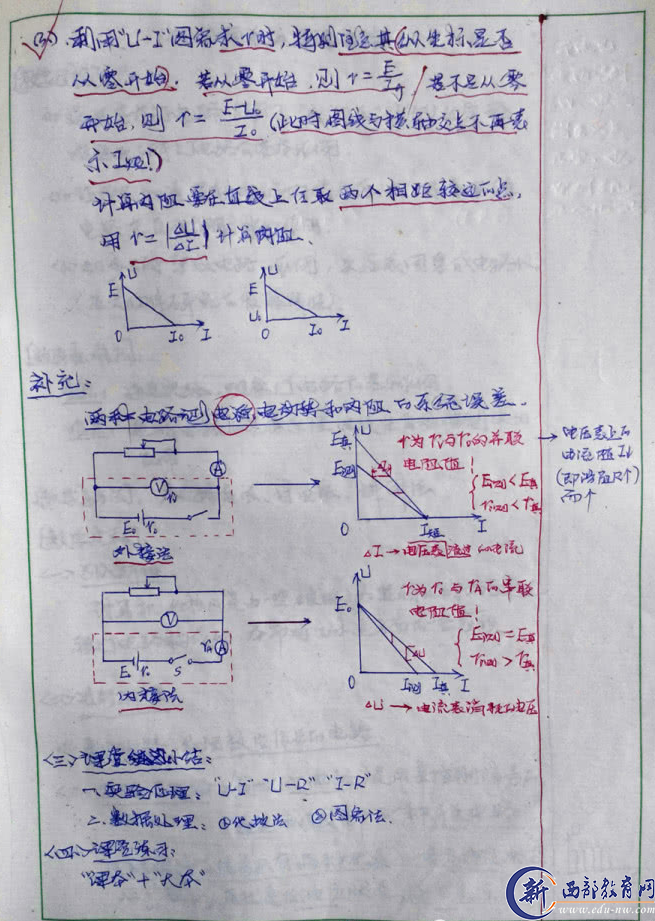 (3). 利用"U-I"图象求r时，特别注意其纵坐标是否
从零开始．若从零开始，则 r = E/I短 若不是从零
开始，则 r = (E-U₀)/I₀ (此时图线与横轴交点不再表
示 I短!)
计算内阻要在直线上任取两个相距较远的点，
用 r = |ΔU/ΔI| 计算内阻．
U
E
O
I₀
I
U
E
U₀
O
I₀
I
补充：
两种电路测电源电动势和内阻的系统误差．
A
V
rv
E₀ r₀
外接法
U
E真
E测
O
I短
I
r为rv与r₀的并联
电阻值!
E测 < E真
r测 < r真
ΔI → 电压表流过的电流
电压表上的
电流随
A
V
rA
E₀ r₀ S
内接法
U
E₀
ΔU
O
I测 I真 I
r为r₀与rA的串联
电阻值!
E测 = E真
r测 > r真
ΔU → 电流表消耗的电压
<三> 课堂小结：
一. 实验原理： "U-I" "U-R" "I-R"
二. 数据处理： ①代数法 ②图象法．
<四> 课堂练习：
"课本"+"大本"
新 西部教育网
www.edu-nw.com